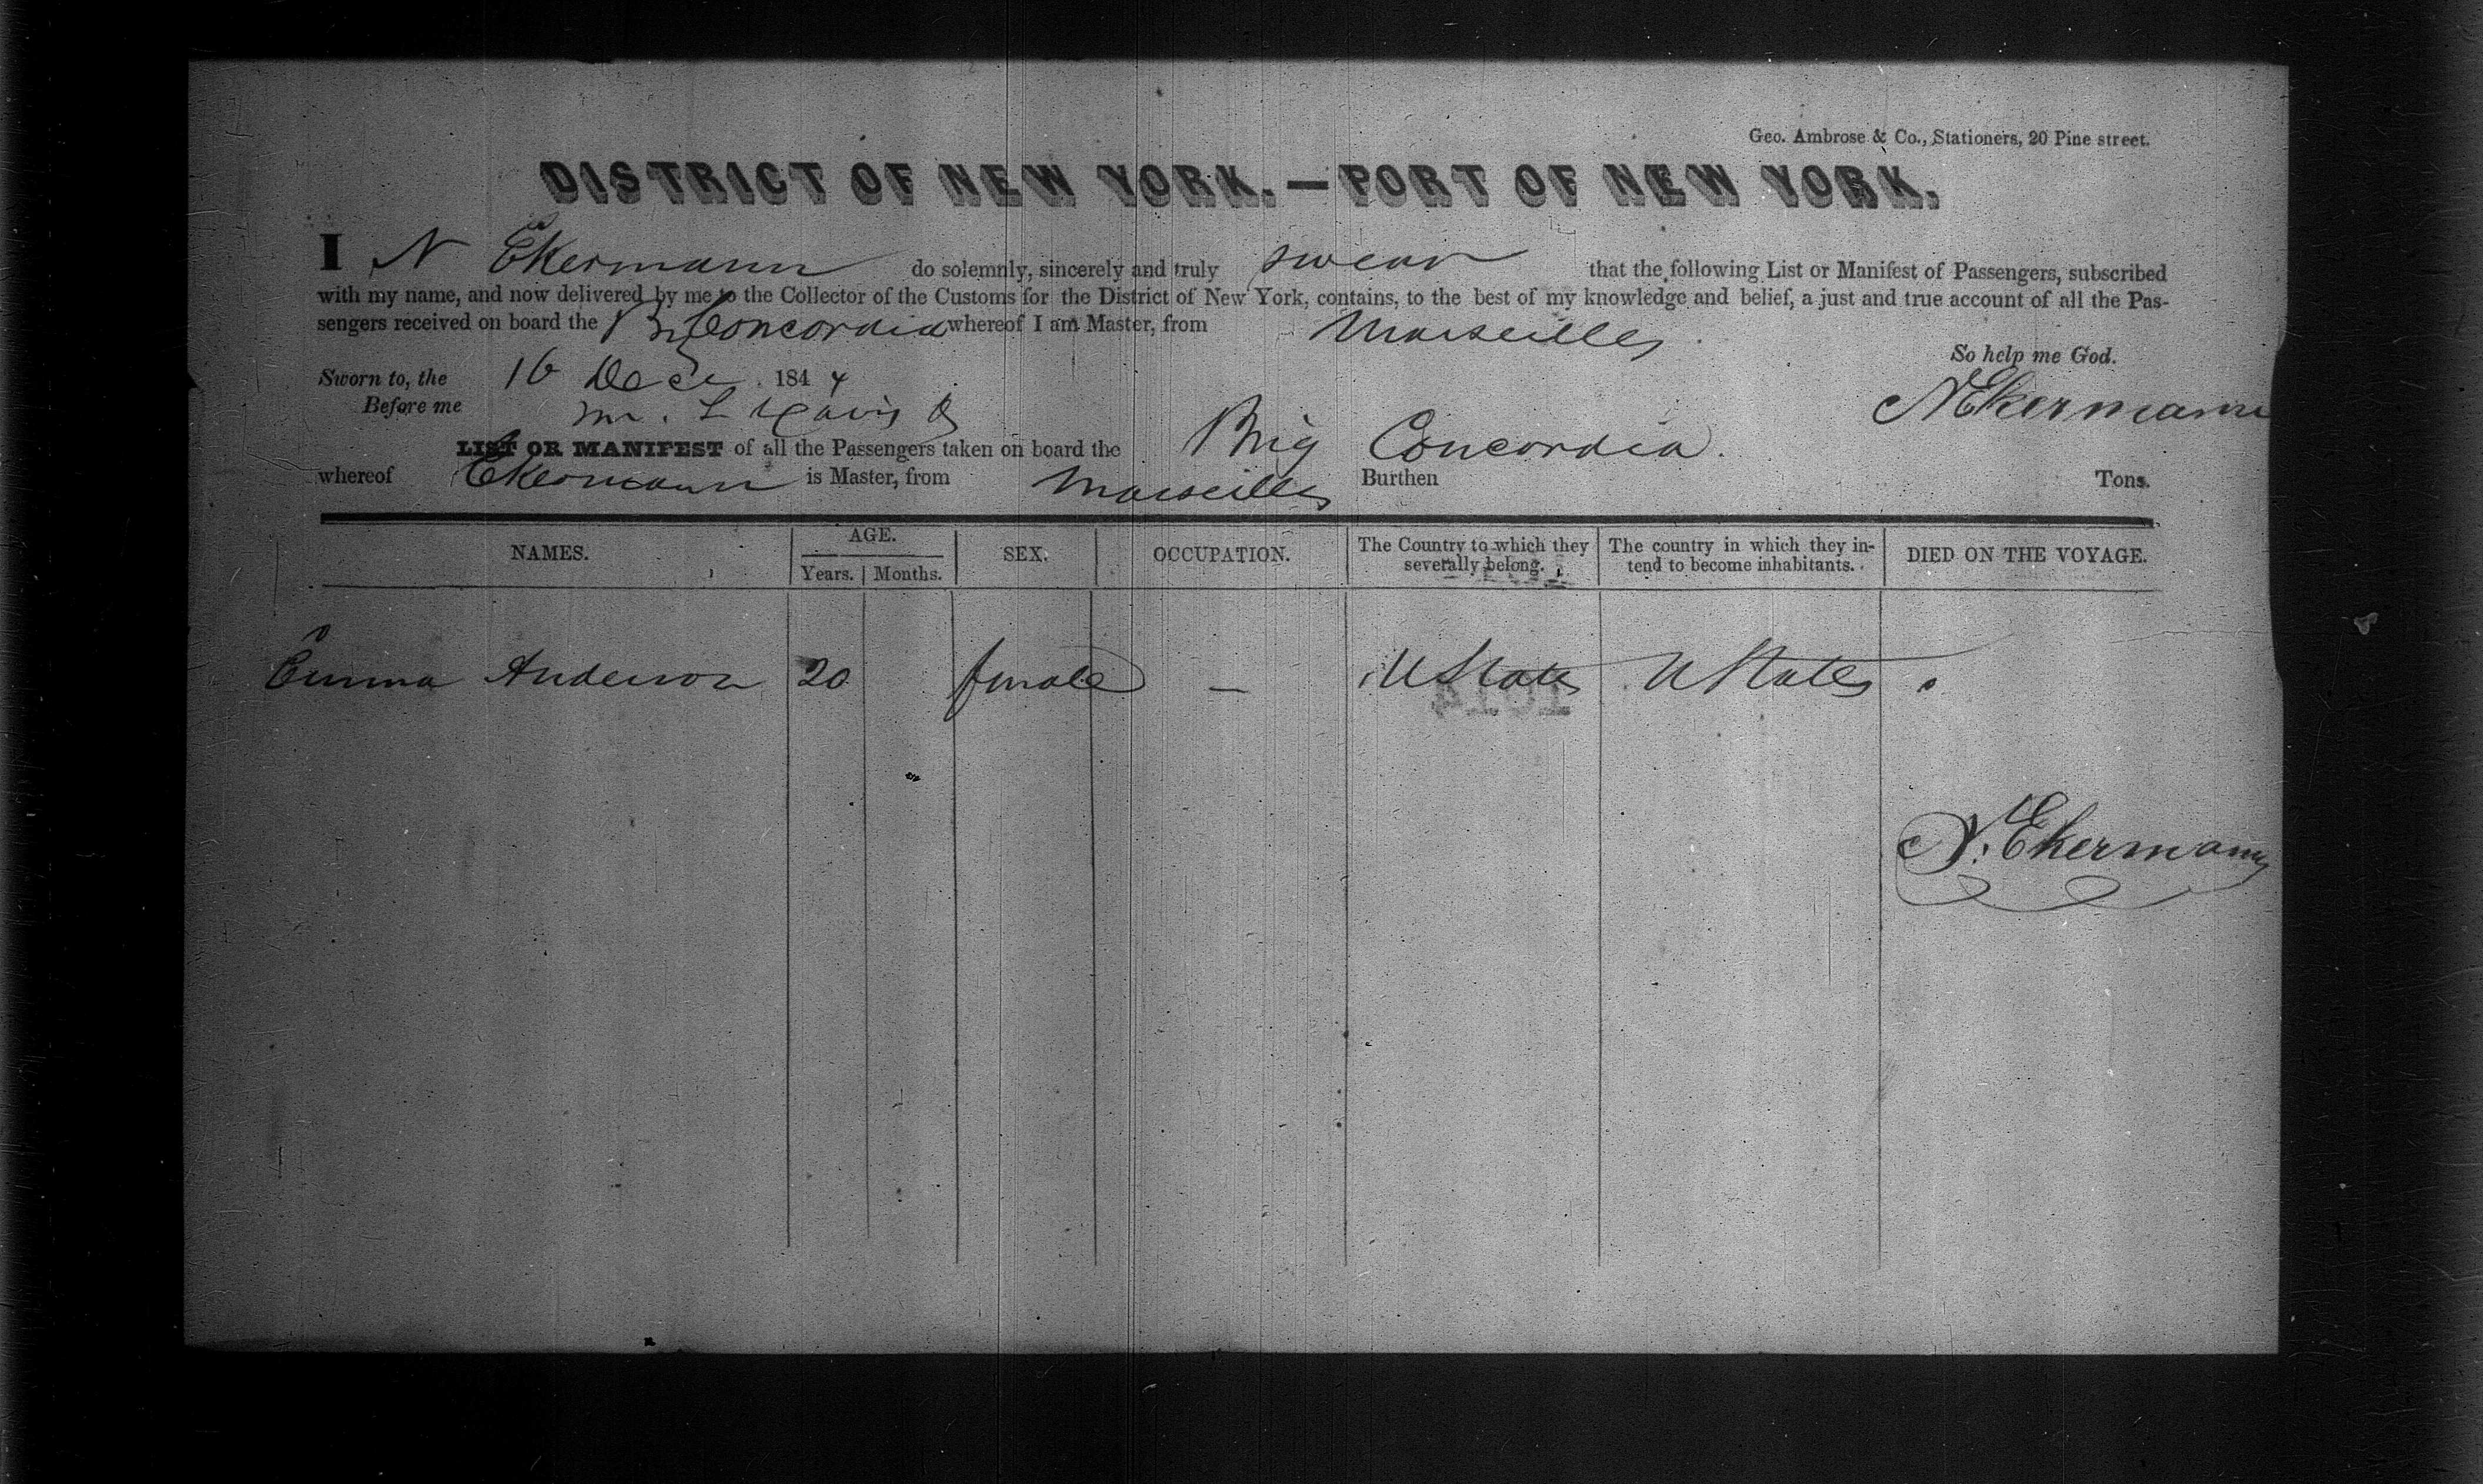 Geo. Ambrose & Co., Stationers, 20 Pine street.
DISTRICT OF NEW YORK.—PORT OF NEW YORK.
I N Ekermann do solemnly, sincerely and truly swear that the following List or Manifest of Passengers, subscribed
with my name, and now delivered by me to the Collector of the Customs for the District of New York, contains, to the best of my knowledge and belief, a just and true account of all the Pas-
sengers received on board the Concordia whereof I am Master, from Marseilles
So help me God.
Sworn to, the 16 Dec 1844
NEkermann
Before me
LIST OR MANIFEST of all the Passengers taken on board the Brig Concordia.
whereof Ekermann is Master, from Marseilles Burthen Tons.
NAMES. AGE. Years. Months. SEX. OCCUPATION. The Country to which they severally belong. The country in which they in-tend to become inhabitants. DIED ON THE VOYAGE.
Emma Anderson 20 female — U States U States
N. Ekermann